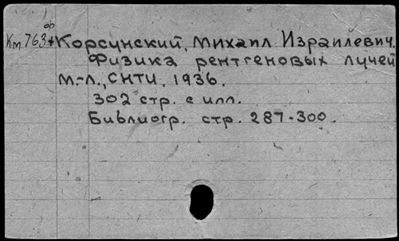 Км763 Корсунский, Михаил Израилевич.
Физика рентгеновых лучей
М.-Л., ОНТИ, 1936.
302 стр. с илл.
Библиогр. стр. 287-300.